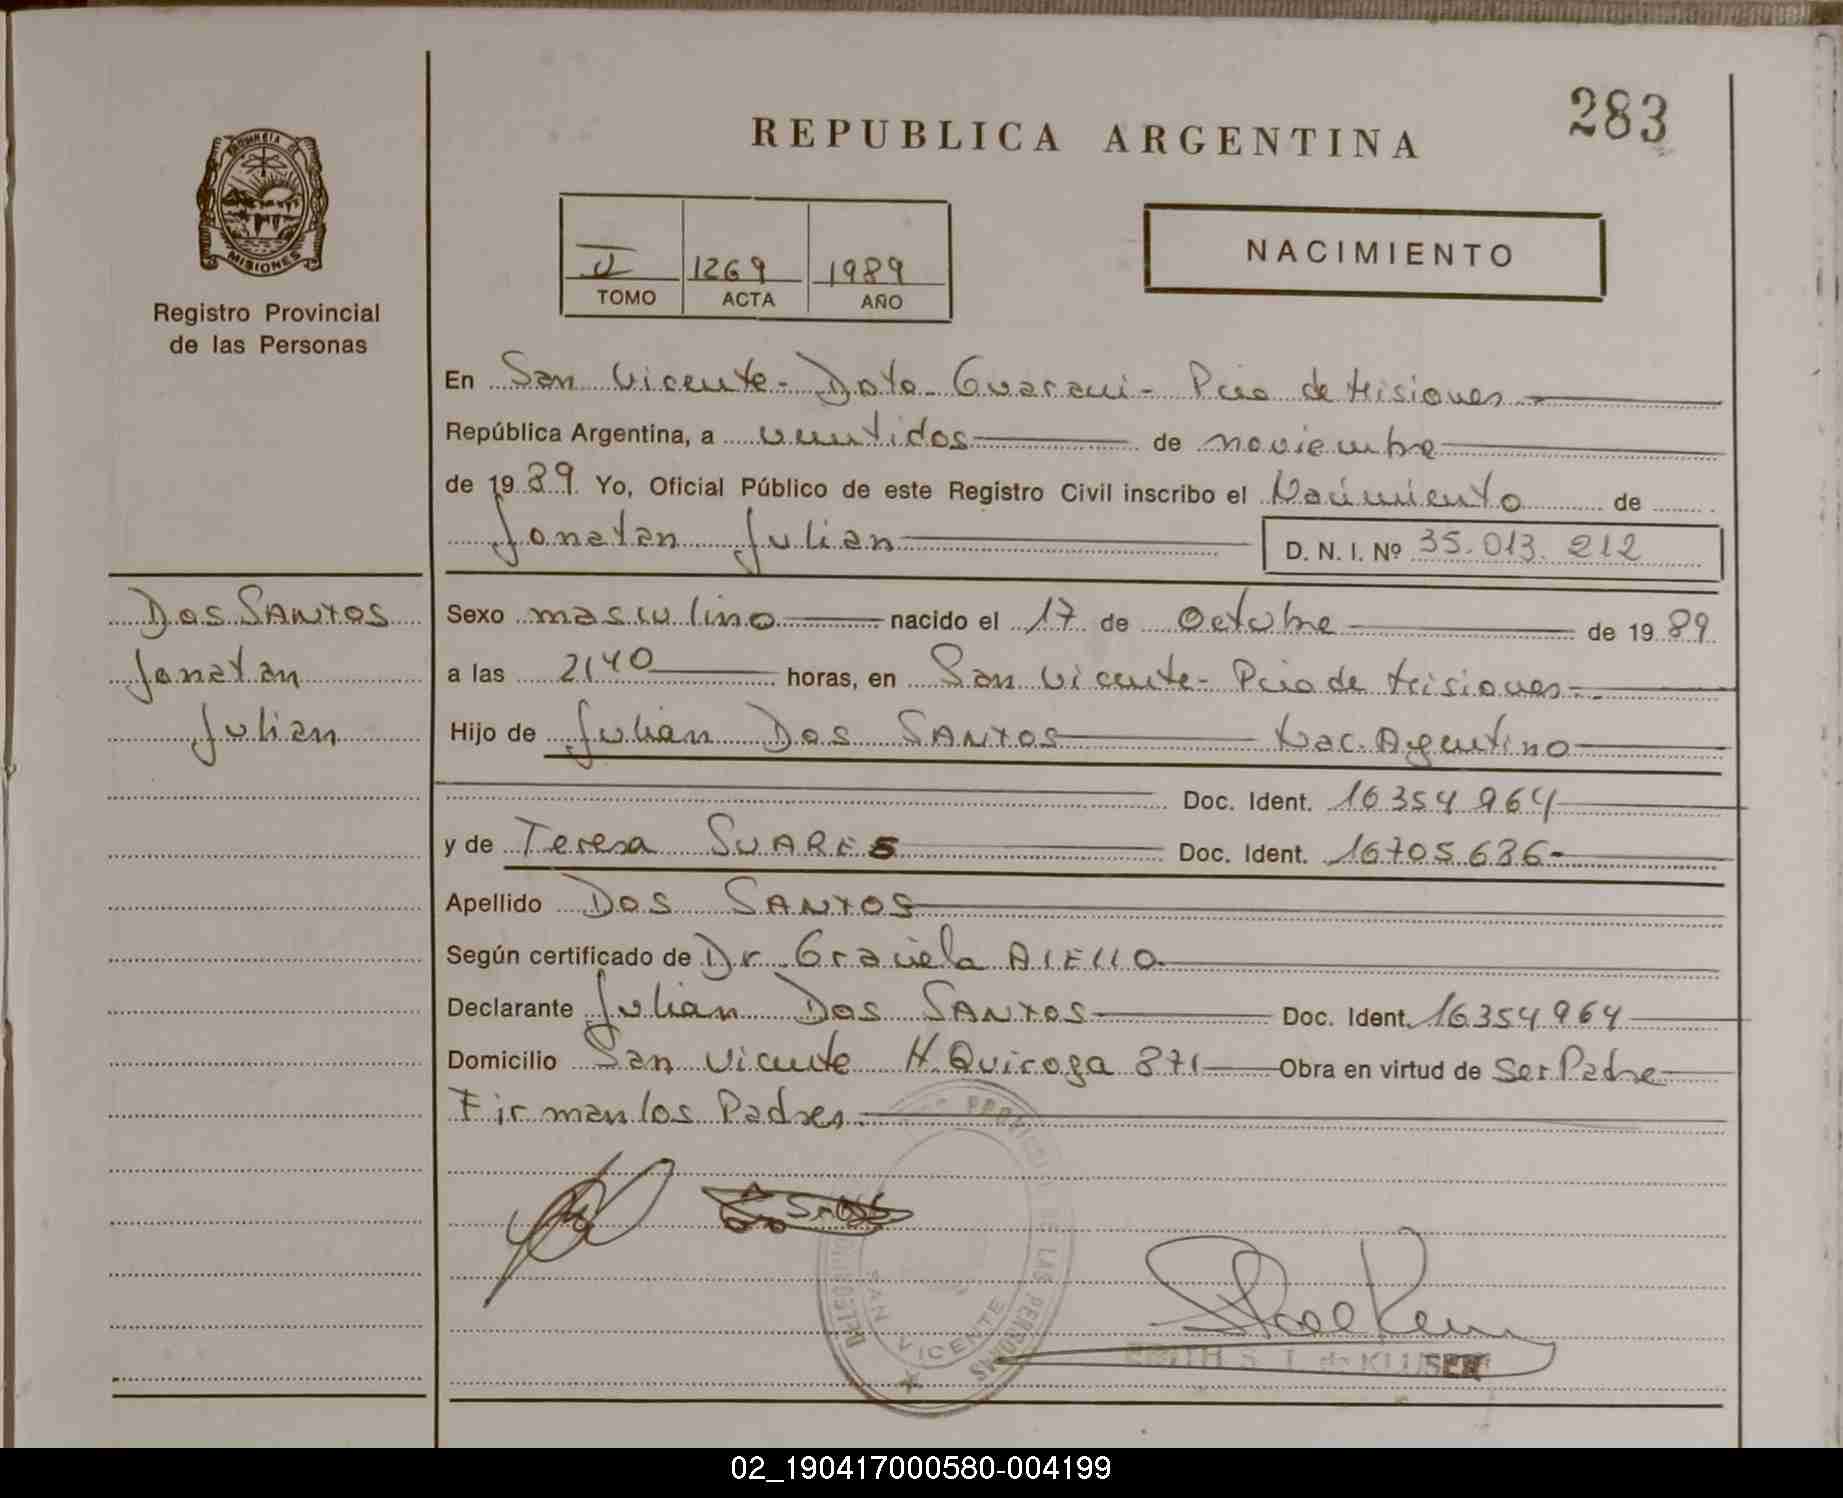 283
REPUBLICA ARGENTINA
PROVINCIA DE
MISIONES
Registro Provincial
de las Personas
1269 1989
TOMO ACTA AÑO
NACIMIENTO
En San Vicente - Dpto. Guarani - Pcia de Misiones
República Argentina, a veintidos de noviembre
de 1989 Yo, Oficial Público de este Registro Civil inscribo el Nacimiento de
Jonatan Julian D. N. I. Nº 35.013.212
Dos Santos
Jonatan
Julian
Sexo masculino nacido el 17 de Octubre de 1989
a las 2140 horas, en San Vicente - Pcia de Misiones
Hijo de Julian Dos Santos Nac. Argentino
Doc. Ident. 16354964
y de Teresa SUARES Doc. Ident. 16705636
Apellido Dos Santos
Según certificado de Dr. Graciela AIELLO
Declarante Julian Dos Santos Doc. Ident. 16354964
Domicilio San Vicente H. Quiroga 871 Obra en virtud de Ser Padre
Firman los Padres
PROVINCIAL DE LAS PERSONAS
SAN VICENTE
EDITH S. T. de KLUSER
02_190417000580-004199